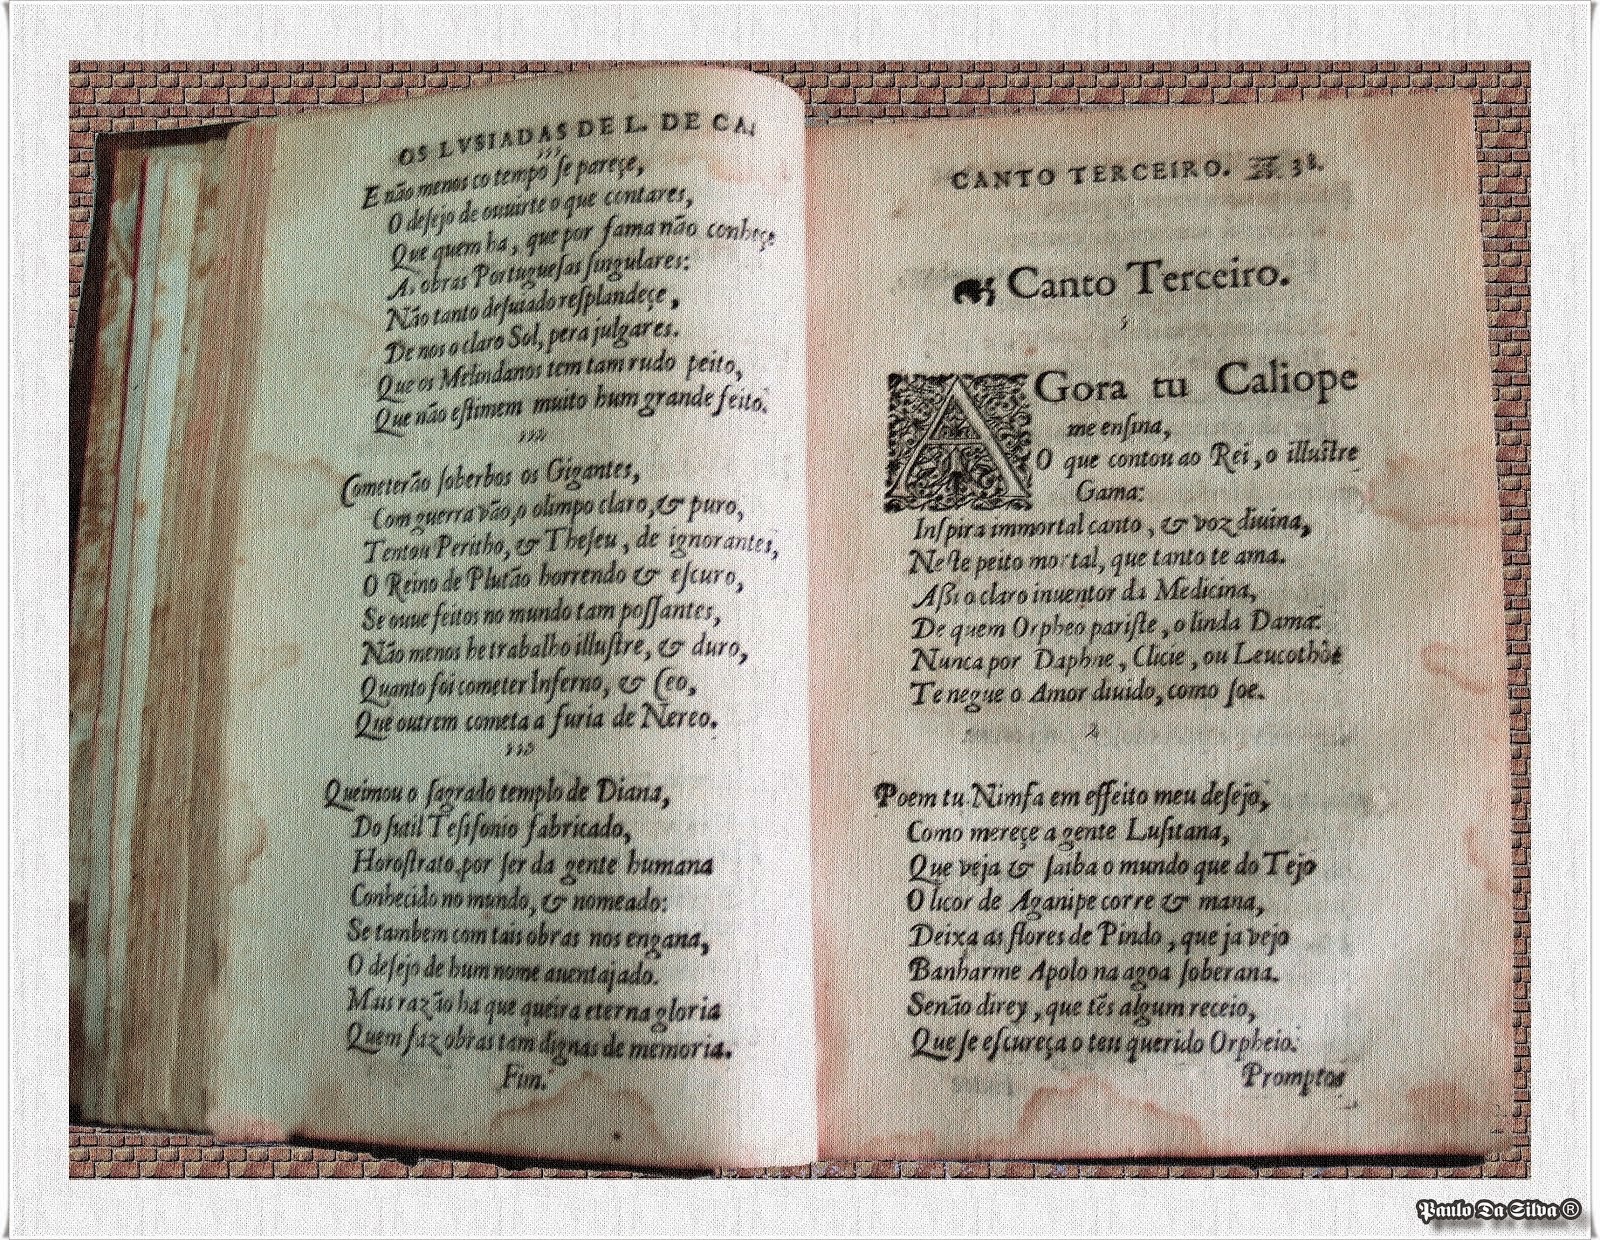 OS LVSIADAS DE L. DE CA.
E não menos co tempo ſe pareçe,
O deſejo de ouuirte o que contares,
Que quem ha, que por fama não conheçe
As obras Portugueſas ſingulares:
Não tanto deſuiado reſplandeçe,
De nos o claro Sol, pera julgares.
Que os Melindanos tem tam rudo peito,
Que não eſtimem muito hum grande feito.
Cometerão ſoberbos os Gigantes,
Com guerra vão, o olimpo claro, & puro,
Tentou Peritho, & Theſeu, de ignorantes,
O Reino de Plutão horrendo & eſcuro,
Se ouue feitos no mundo tam poſſantes,
Não menos he trabalho illuſtre, & duro,
Quanto foi cometer Inferno, & Ceo,
Que outrem cometa a furia de Nereo.
Queimou o ſagrado templo de Diana,
Do ſutil Teſifonio fabricado,
Horoſtrato, por ſer da gente humana
Conhecido no mundo, & nomeado:
Se tambem com tais obras nos engana,
O deſejo de hum nome auentajado.
Mais razão ha que queira eterna gloria
Quem faz obras tam dignas de memoria.
Fim.
CANTO TERCEIRO. 38.
Canto Terceiro.
AGora tu Caliope
me enſina,
O que contou ao Rei, o illuſtre
Gama:
Inſpira immortal canto, & voz diuina,
Neſte peito mortal, que tanto te ama.
Aßi o claro inuentor da Medicina,
De quem Orpheo pariſte, o linda Dama:
Nunca por Daphne, Clicie, ou Leucothoe
Te negue o Amor diuido, como ſoe.
Poem tu Nimfa em effeito meu deſejo,
Como mereçe a gente Luſitana,
Que veja & ſaiba o mundo que do Tejo
O licor de Aganipe corre & mana,
Deixa as flores de Pindo, que ja vejo
Banharme Apolo na agoa ſoberana.
Senão direy, que tẽs algum receio,
Que ſe eſcureça o teu querido Orpheio.
Promptos
Paulo Da Silva ®